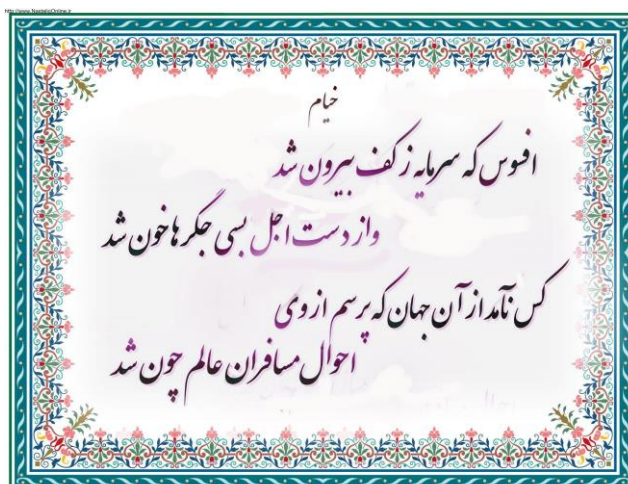 http://www.NastaliqOnline.ir
خیام
افسوس که سرمایه ز کف بیرون شد
واز دست اجل بسی جگر ها خون شد
کس نآمد از آن جهان که پرسم از وی
احوال مسافران عالم چون شد